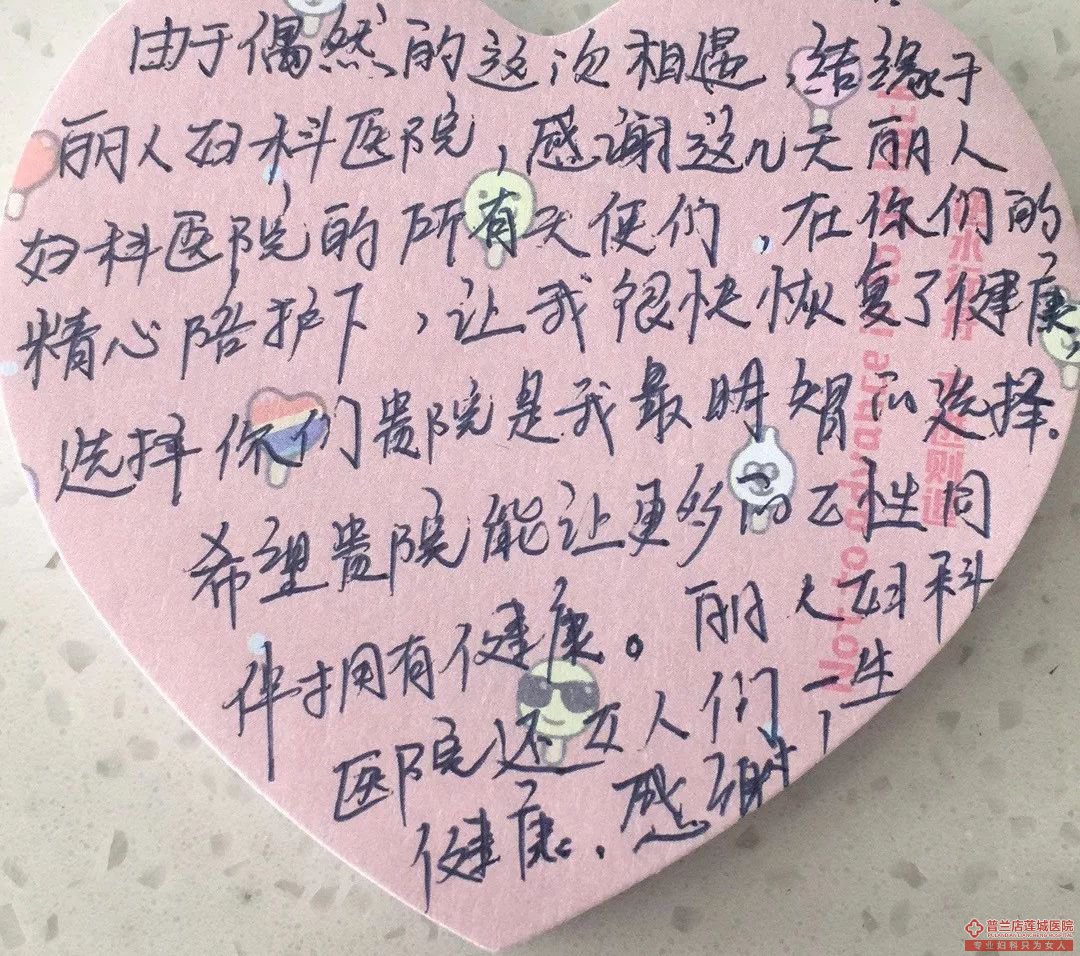 由于偶然的这次相遇，结缘于
丽人妇科医院，感谢这几天丽人
妇科医院的所有天使们，在你们的
精心陪护下，让我很快恢复了健康，
选择你们贵院是我最明智的选择。
希望贵院能让更多的女性同
伴拥有健康。丽人妇科
医院还女人们一生
健康。感谢！
普兰店莲城医院
PULANDIAN LIANCHENG HOSPITAL
专业妇科只为女人